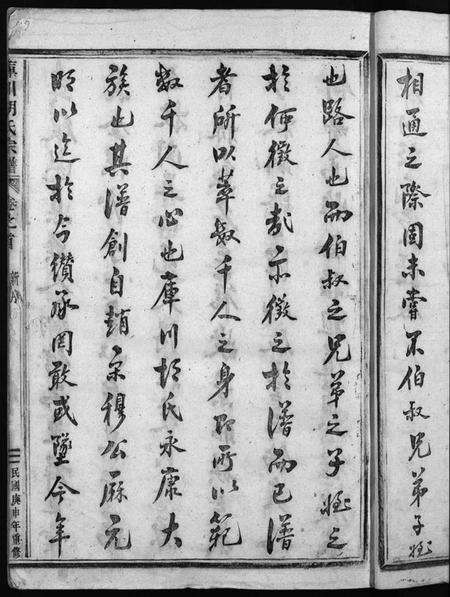 相通之際固未嘗不伯叔兄弟子姪
也路人也而伯叔之兄弟之子姪之
於何徵之哉亦徵之於譜而已譜
者所以萃數千人之身即所以範
數千人之心也庫川胡氏永康大
族也其譜創自趙宋穆公歷元
明以迄於今纘承罔敢或墜今年
庫川胡氏宗譜 卷之首
民國庚申年重修